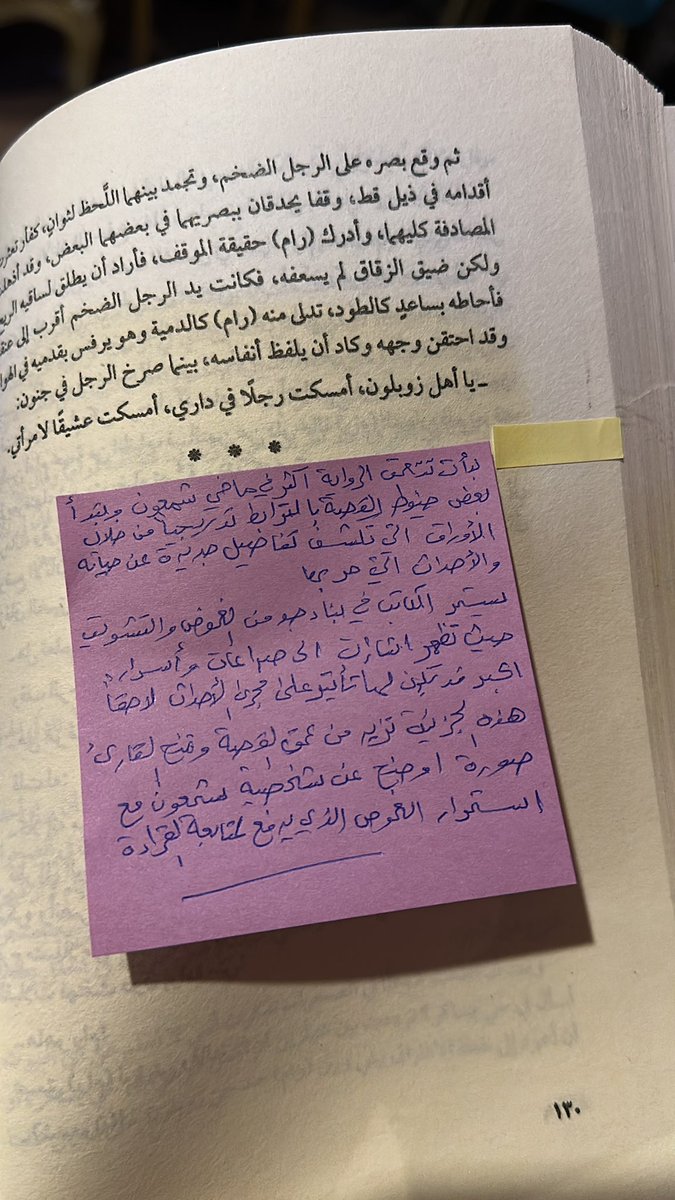 ثم وقع بصره على الرجل الضخم، وتجمد بينهما اللَّحظ لثوانٍ، كفأر تعثرت
أقدامه في ذيل قط، وقفا يحدقان ببصريهما في بعضهما البعض، وقد أذهلت
المصادفة كليهما، وأدرك (رام) حقيقة الموقف، فأراد أن يطلق لساقيه الريح
ولكن ضيق الزقاق لم يسعفه، فكانت يد الرجل الضخم أقرب إلى
فأحاطه بساعدٍ كالطود، تدلى منه (رام) كالدمية وهو يرفس بقدميه في الهوا
وقد احتقن وجهه وكاد أن يلفظ أنفاسه، بينما صرخ الرجل في جنون:
ـ يا أهل زوبلون، أمسكت رجلًا في داري، أمسكت عشيقًا لامرأتي.
* * *
بدأت تتعمق الرواية أكثر في ماضي شمعون ويبدأ
بعض خيوط القصة بالترابط تدريجياً من خلال
الأوراق التي تكشف تفاصيل جديدة عن حياته
والأحداث التي مر بها
يستمر الكاتب في بناء جو من الغموض والتشويق
حيث تظهر اشارات الى صراعات وأسرار
اكبر قد تكون لها تأثير على مجرى الأحداث لاحقاً
هذه الجزئية تزيد من عمق القصة وتمنح القارئ
صورة اوضح عن شخصية شمعون مع
استمرار الغموض الذي يدفع لمتابعة القراءة
١٣٠